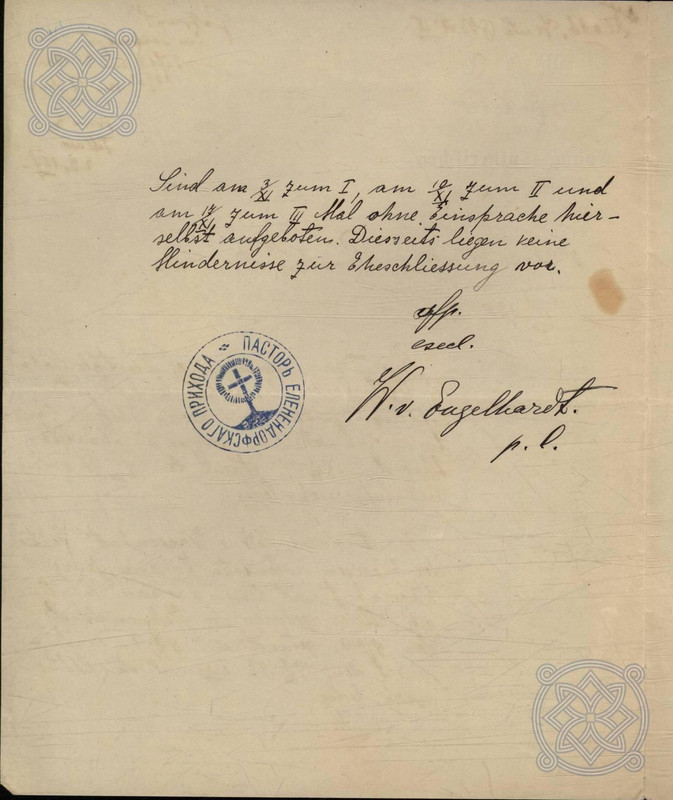 Sind am 3/XI zum I, am 10/XI zum II und
am 17/XI zum III Mal ohne Einsprache hier-
selbst aufgeboten. Diesseits liegen keine
Hindernisse zur Eheschliessung vor.
W. v. Engelhardt.
p. l.
ПАСТОРЪ ЕЛЕНЕНДОРФСКАГО ПРИХОДА